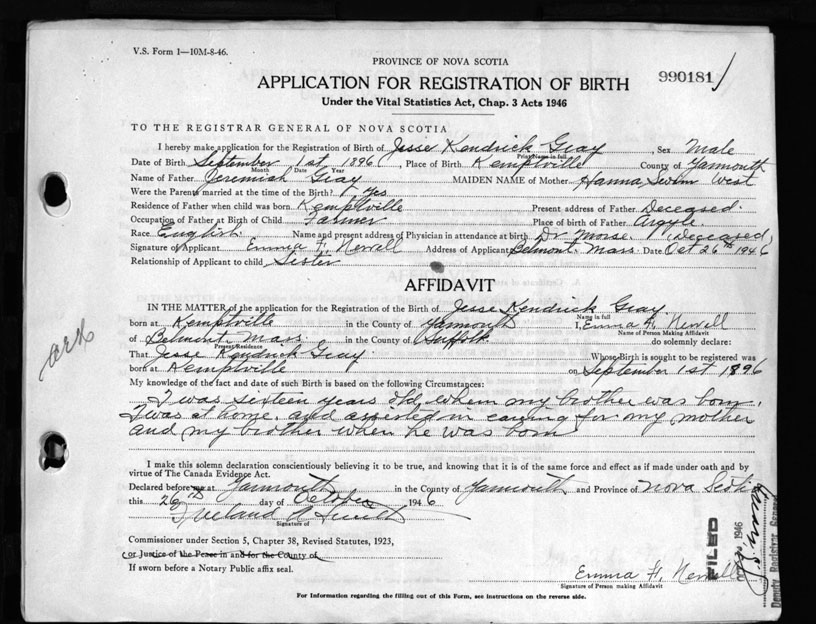 V.S. Form 1—10M-8-46.
PROVINCE OF NOVA SCOTIA
APPLICATION FOR REGISTRATION OF BIRTH
990181
Under the Vital Statistics Act, Chap. 3 Acts 1946
TO THE REGISTRAR GENERAL OF NOVA SCOTIA
I hereby make application for the Registration of Birth of Jesse Kendrick Gray, Sex Male
Print Name in full
Date of Birth September 1st 1896, Place of Birth Kemptville County of Yarmouth
Month Date Year
Name of Father Jeremiah Gray MAIDEN NAME of Mother Hanna Swim West
Were the Parents married at the time of the Birth? Yes
Residence of Father when child was born Kemptville Present address of Father Deceased.
Occupation of Father at Birth of Child Farmer Place of birth of Father Argyle.
Race English. Name and present address of Physician in attendance at birth Dr Morse. (Deceased)
Signature of Applicant Emma F. Newell Address of Applicant Belmont. Mass. Date Oct 26th 1946
Relationship of Applicant to child Sister
AFFIDAVIT
IN THE MATTER of the application for the Registration of Birth of Jesse Kendrick Gray.
Name in full
born at Kemptville in the County of Yarmouth I, Emma F. Newell
Name of Person Making Affidavit
of Belmont Mass in the County of Suffolk do solemnly declare:
Present Residence
That Jesse Kendrick Gray. Whose Birth is sought to be registered was
born at Kemptville on September 1st 1896
My knowledge of the fact and date of such Birth is based on the following Circumstances:
I was sixteen years old when my brother was born.
I was at home. and assisted in caring for my mother
and my brother when he was born
I make this solemn declaration conscientiously believing it to be true, and knowing that it is of the same force and effect as if made under oath and by
virtue of The Canada Evidence Act.
Declared before me at Yarmouth in the County of Yarmouth and Province of Nova Scotia
this 26th day of October 1946
Signature of
Commissioner under Section 5, Chapter 38, Revised Statutes, 1923,
(or Justice of the Peace in and for the County of
If sworn before a Notary Public affix seal.
Emma F. Newell
Signature of Person making Affidavit
FILED
1946
Deputy Registrar General
For Information regarding the filling out of this Form, see instructions on the reverse side.